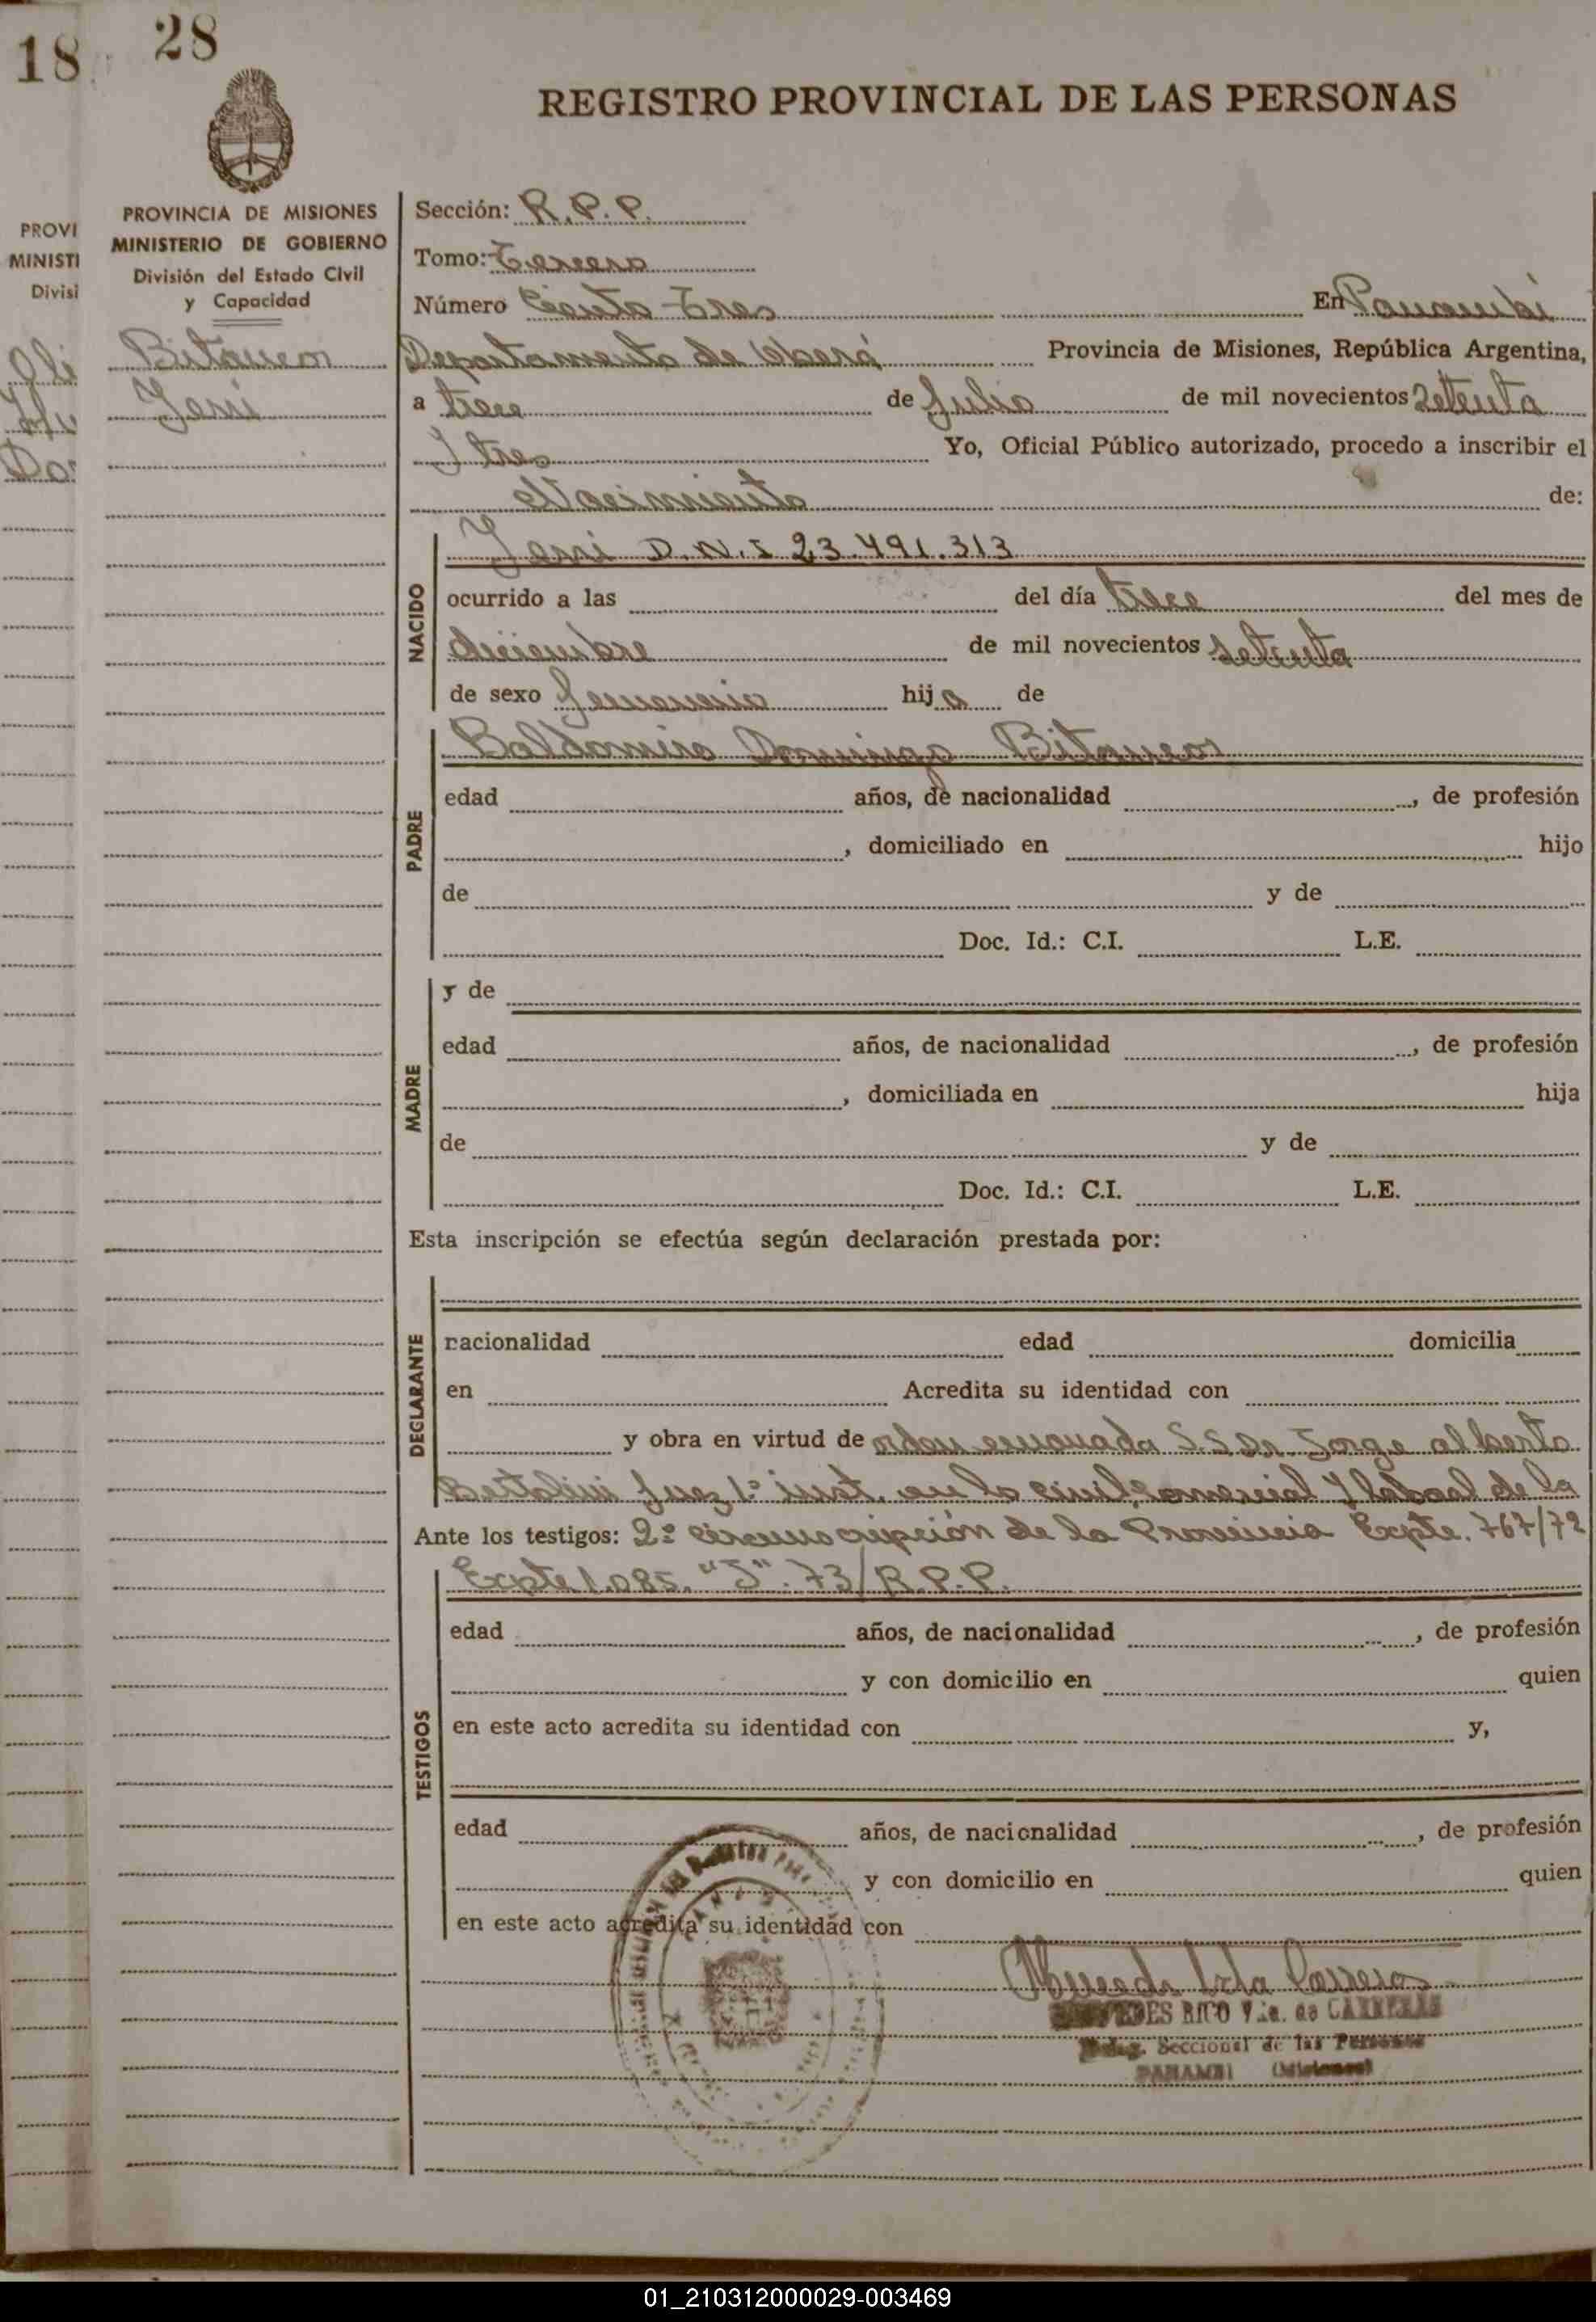 18
28
REGISTRO PROVINCIAL DE LAS PERSONAS
PROVI
MINISTI
Divisi
PROVINCIA DE MISIONES
MINISTERIO DE GOBIERNO
División del Estado Civil
y Capacidad
Sección: R.P.P.
Tomo: Tercero
Número Ciento Tres En Panambí
Departamento de Oberá Provincia de Misiones, República Argentina,
a trece de Julio de mil novecientos Setenta
Y tres Yo, Oficial Público autorizado, procedo a inscribir el
Nacimiento de:
NACIDO
D.N.I 23.491.313
ocurrido a las del día trece del mes de
diciembre de mil novecientos setenta
de sexo femenino hija de
PADRE
Baldomiro Domingo
edad años, de nacionalidad , de profesión
, domiciliado en hijo
de y de
Doc. Id.: C.I. L.E.
MADRE
y de
edad años, de nacionalidad , de profesión
, domiciliada en hija
de y de
Doc. Id.: C.I. L.E.
Esta inscripción se efectúa según declaración prestada por:
DECLARANTE
nacionalidad edad domicilia
en Acredita su identidad con
y obra en virtud de orden emanada S.S Dr. Jorge alberto
Bertolini Juez 1º inst. en lo civil, comercial Y laboral de la
Ante los testigos: 2º circunscripción de la Provincia Expte. 767/72
Expte 1.085. "J". 73/R.P.P.
TESTIGOS
edad años, de nacionalidad , de profesión
y con domicilio en quien
en este acto acredita su identidad con y,
edad años, de nacionalidad , de profesión
y con domicilio en quien
en este acto acredita su identidad con
MERCEDES RICO Vda. de CARRERAS
Deleg. Seccional de las Personas
PANAMBI (Misiones)
01_210312000029-003469